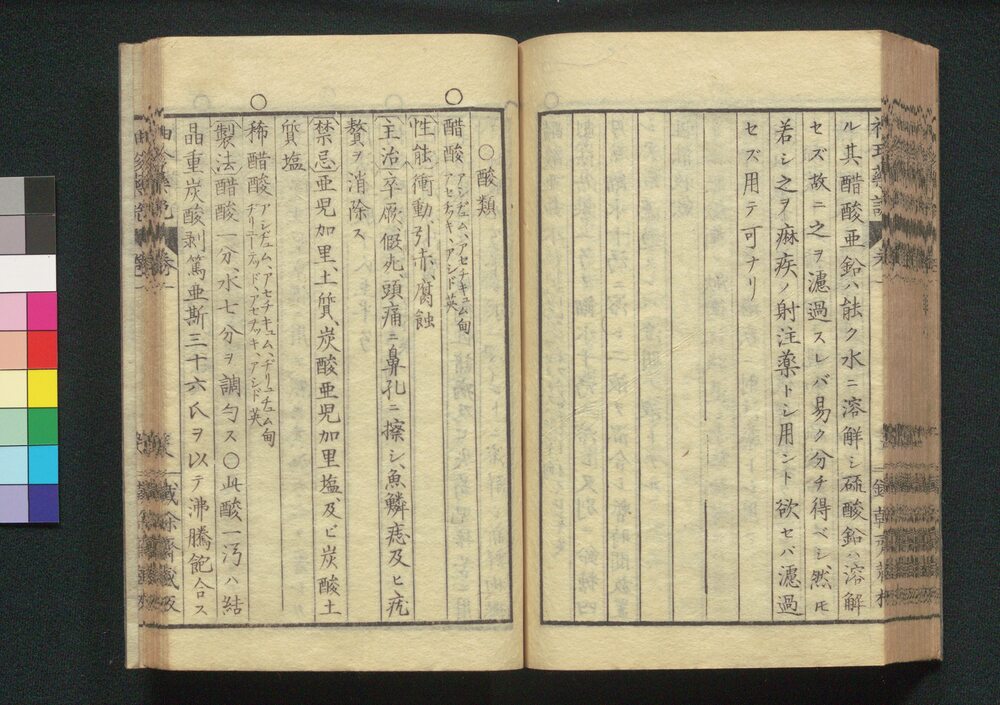 ル其醋酸亜鉛ハ能ク水ニ溶解シ硫酸鉛ハ溶解
セズ故ニ之ヲ濾過スレバ易ク分チ得ベシ然ㇳモ
若シ之ヲ痳疾ノ射注薬トシ用ント欲セバ濾過
セズ用テ可ナリ
○酸類
○
醋酸 アシヂュム、アセチキュム甸 アセチッキ、アシド英
性能衝動、引赤、腐蝕
主治卒厥、假死、頭痛ニ鼻孔ニ擦シ、魚鱗痣及ヒ疣
贅ヲ消除ス
禁忌亜児加里、土質、炭酸亜児加里塩、及ビ炭酸土
質塩
○
稀醋酸 アシヂュム、アセチキュム、ヂリュチュム甸 ヂリューテッド、アセチッキ、アシド英
製法醋酸一分、水七分ヲ調匀ス○此酸一汚ハ結
晶重炭酸剥篤亜斯三十六氏ヲ以テ沸騰飽合ス